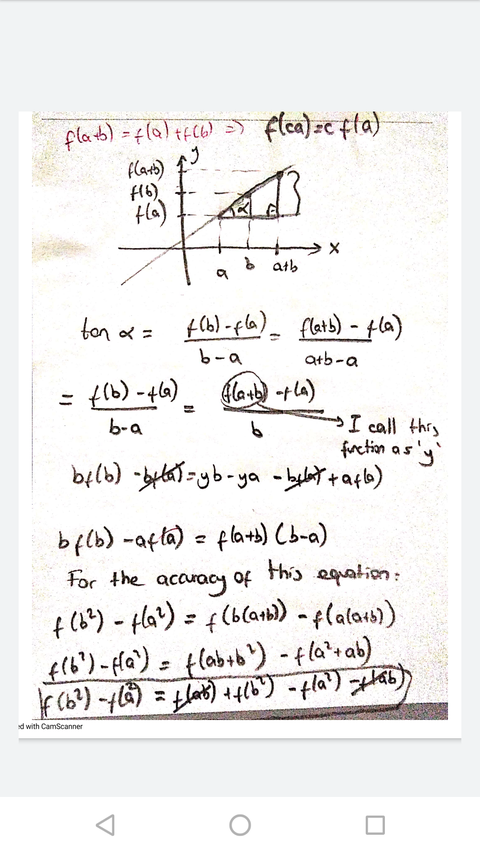 f(a+b) = f(a) + f(b) => f(ca) = c f(a)
y
f(a+b)
f(b)
f(a)
α
x
a b a+b
tan α = f(b) - f(a) / b-a = f(a+b) - f(a) / a+b-a
= f(b) - f(a) / b-a = f(a+b) - f(a) / b
I call this
function as 'y'
bf(b) - bf(a) = yb - ya - bf(a) + af(a)
bf(b) - af(a) = f(a+b) (b-a)
For the accuracy of this equation:
f(b²) - f(a²) = f(b(a+b)) - f(a(a+b))
f(b²) - f(a²) = f(ab+b²) - f(a²+ab)
f(b²) - f(a²) = f(ab) + f(b²) - f(a²) - f(ab)
ed with CamScanner